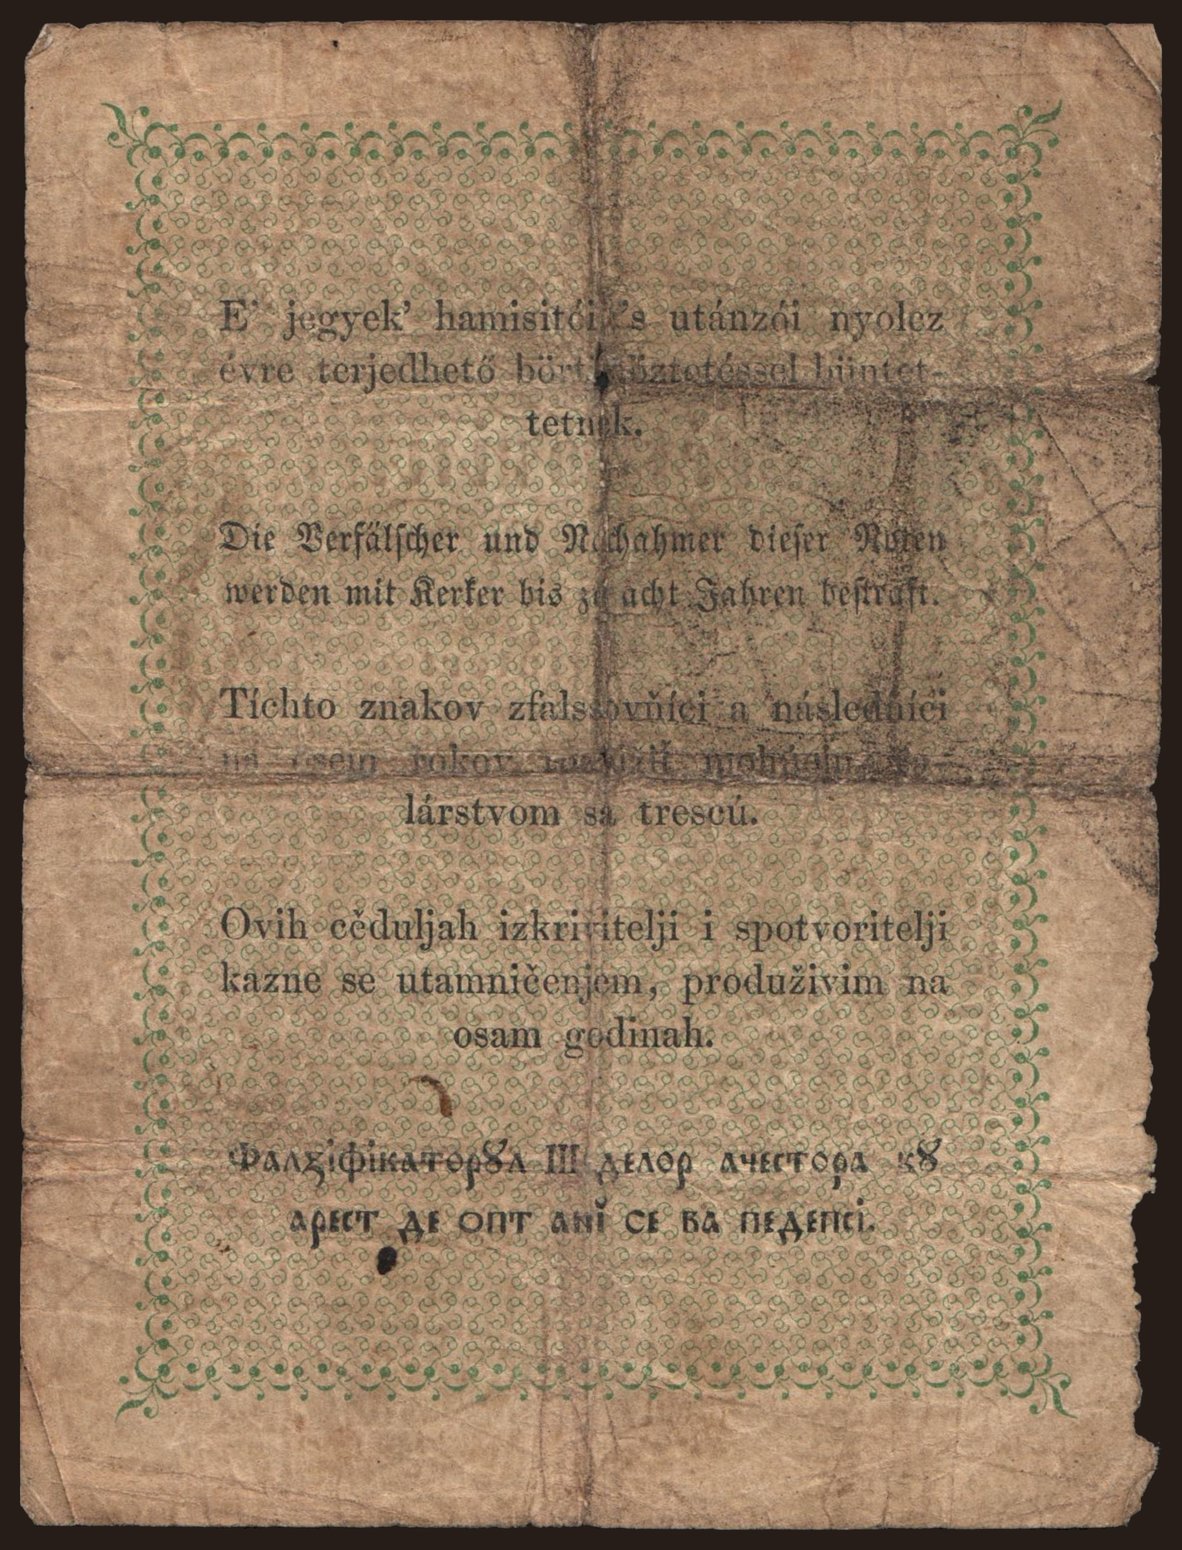 E’ jegyek’ hamisitói ’s utánzói nyolcz
évre terjedhető büntet-
tetnek.
Die Verfälscher und Nachahmer dieser Noten
werden mit Kerker bis zu acht Jahren bestraft.
Tíchto znakov zfalssovňíci a následňíci
na osem rokov
lárstvom sa trescú.
Ovih cěduljah izkrivitelji i spotvoritelji
kazne se utamničenjem, produživim na
osam godinah.
Фалзіфікаторꙋл Ш делор ачестора кꙋ
арест де опт анĭ се ва педепсі.